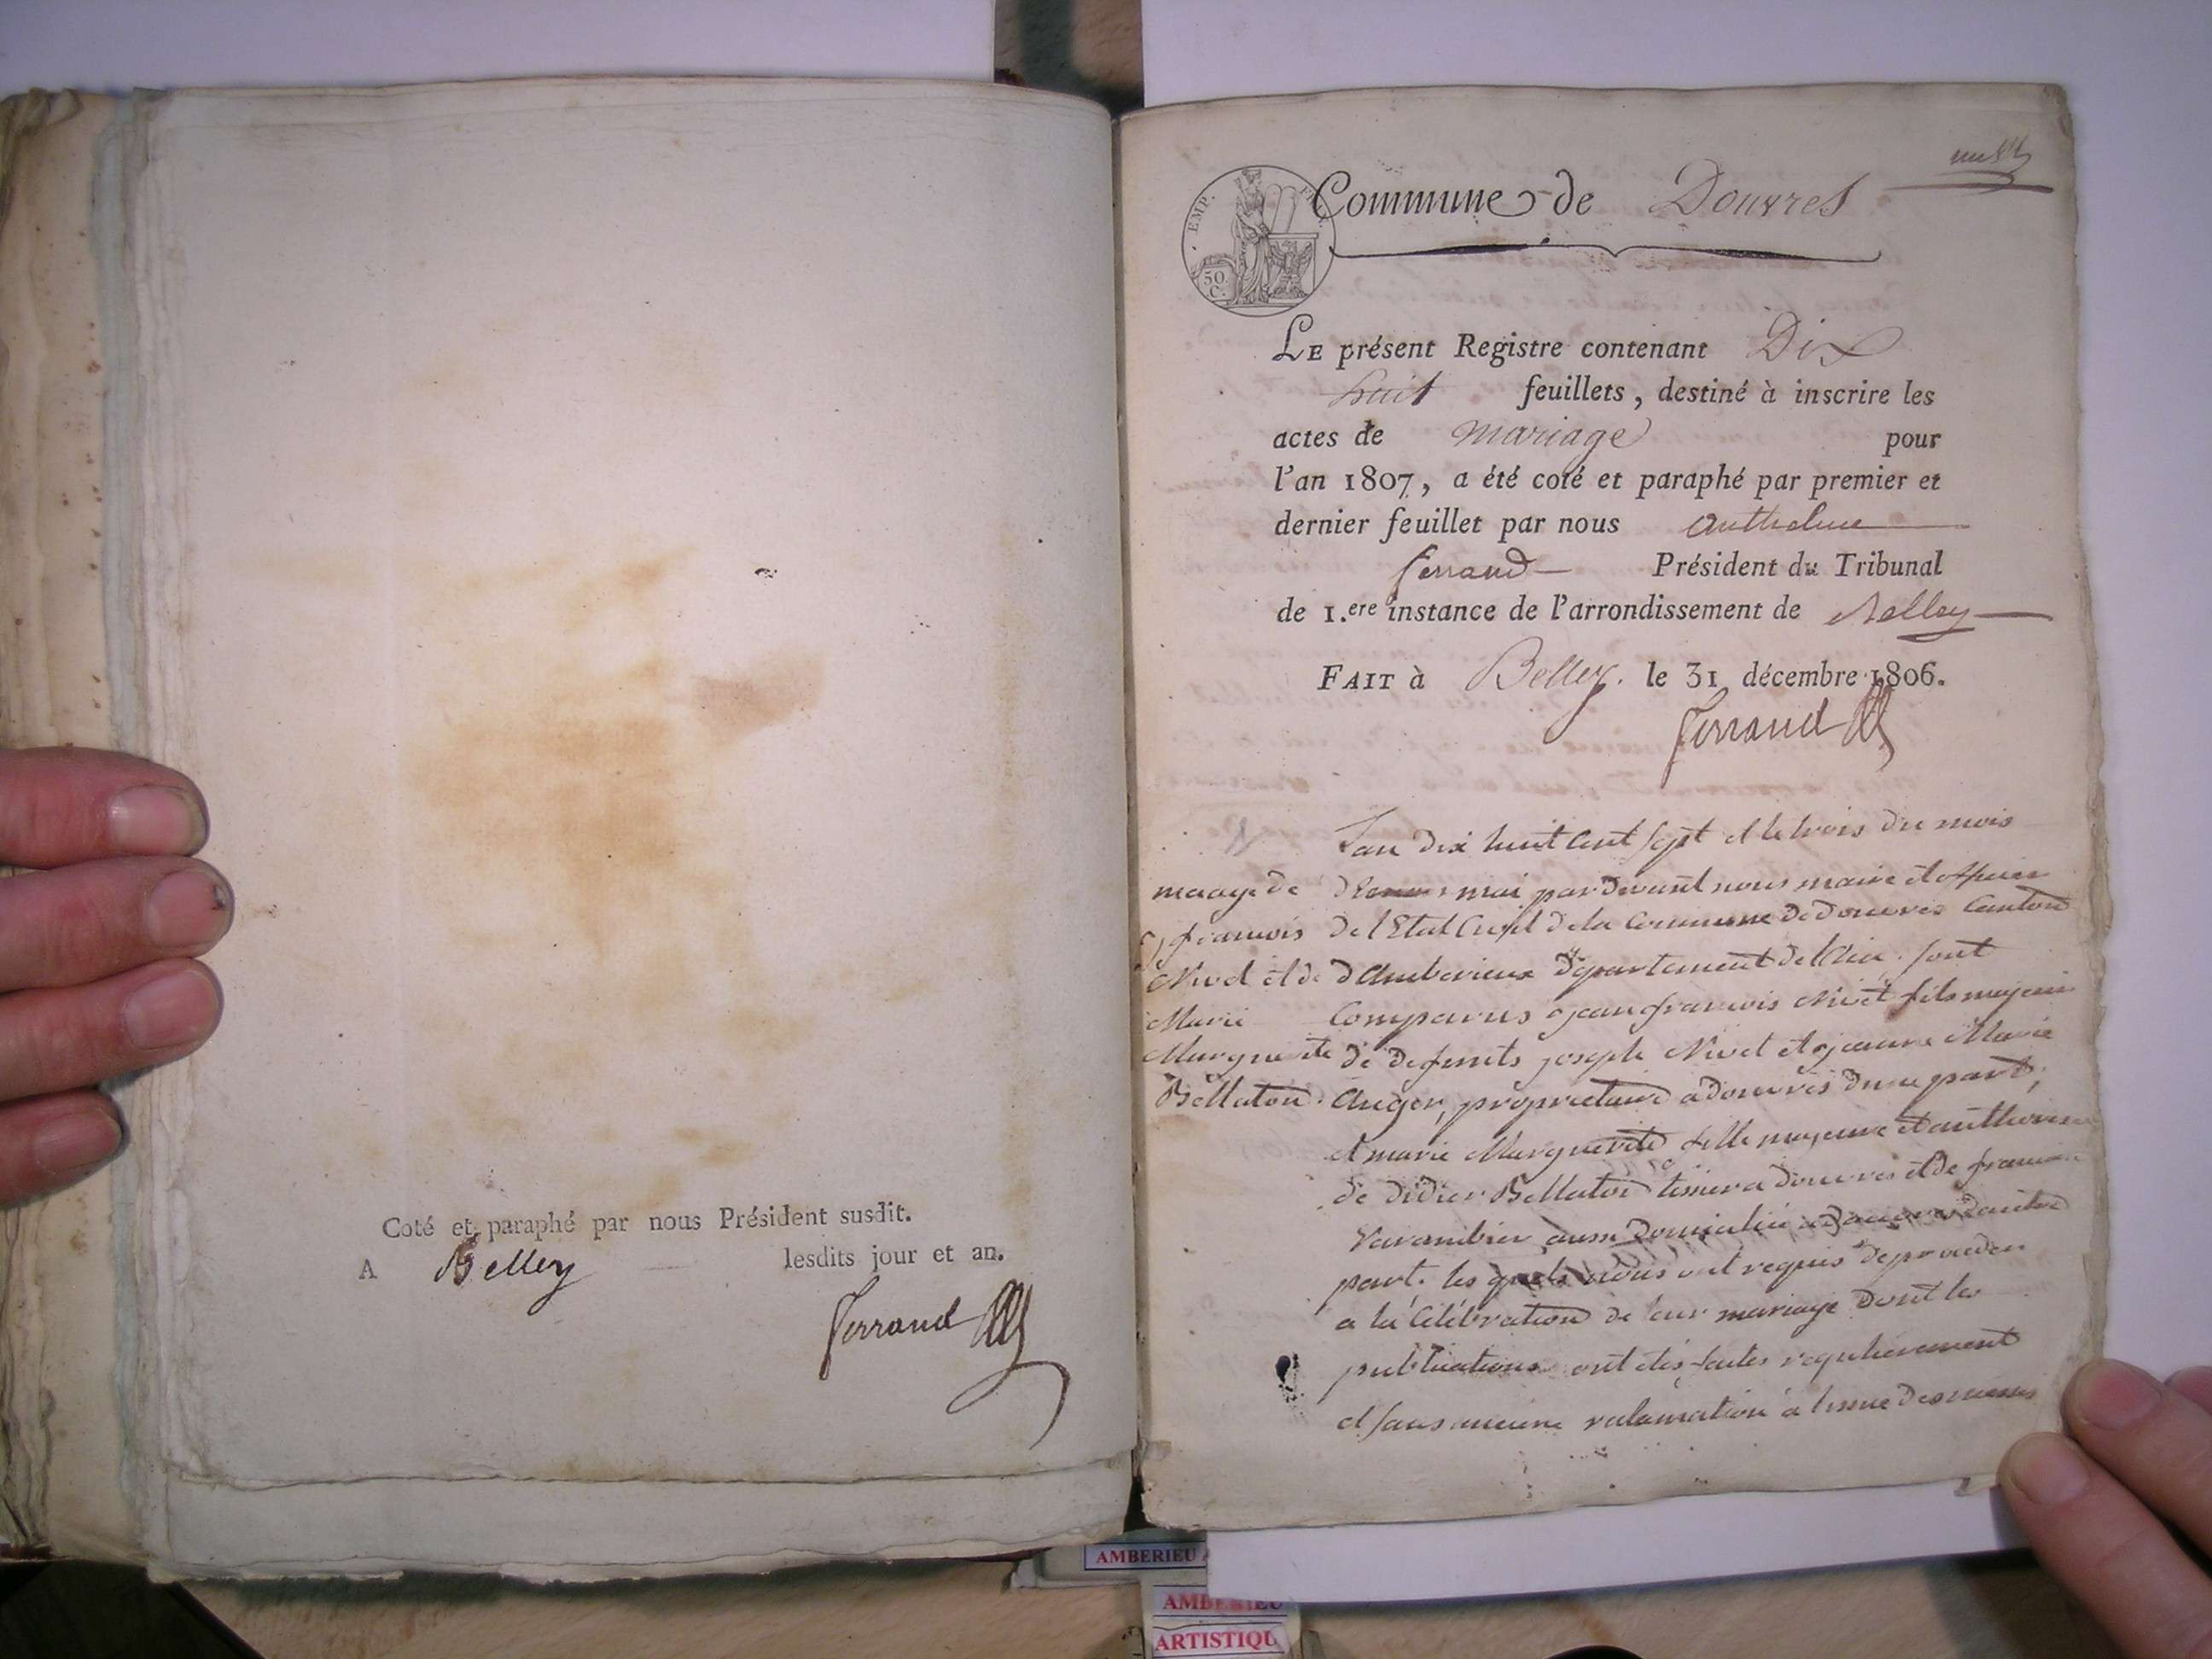 Coté et paraphé par nous Président susdit.
A Belley lesdits jour et an.
Ferrand
EMP.
50
C.
Commune de Douvres
LE présent Registre contenant Dix
huit feuillets, destiné à inscrire les
actes de mariage pour
l'an 1807, a été coté et paraphé par premier et
dernier feuillet par nous Anthelme
ferrand Président du Tribunal
de 1.ere instance de l'arrondissement de Belley
FAIT à Belley. le 31 décembre 1806.
Ferrand
Lan dix huit Cent Sept et le trois du mois
de mai pardevant nous maire et officier
de lEtat Civil de la Commune de douvres Canton
dAmberieux département de lAin. sont
Comparus jean francois Nivet fils majeur
de defunts joseph Nivet et jeanne Marie
Auger, proprietaire a douvres dune part,
et marie Marguerite fille majeure et authorisée
de didier Bellaton tissier a douvres et de
Varambier aussi domicilié a douvres dautre
part. les quels nous ont requis de proceder
a la Célébration de leur mariage dont les
publications ont étés faites regulierement
et sans aucune reclamation a lissue des messes
mariage de
francois
Nivet et de
Marie
Marguerite
Bellaton.
AMBERIEU
AMBERIEU
ARTISTIQU